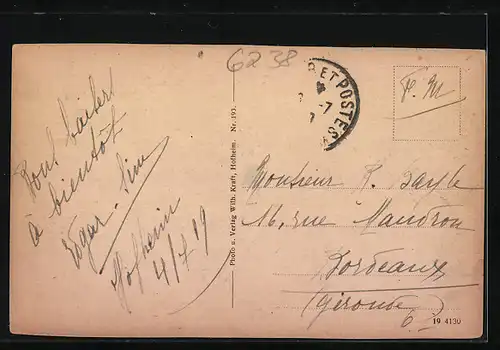 6238
à bientôt
Hofheim
4/7 19
Photo u. Verlag Wilh. Kraft, Hofheim. Nr. 193.
ET POSTES
F. M
Monsieur R. Bayle
16, rue Mandron
Bordeaux
(Gironde)
19 4130